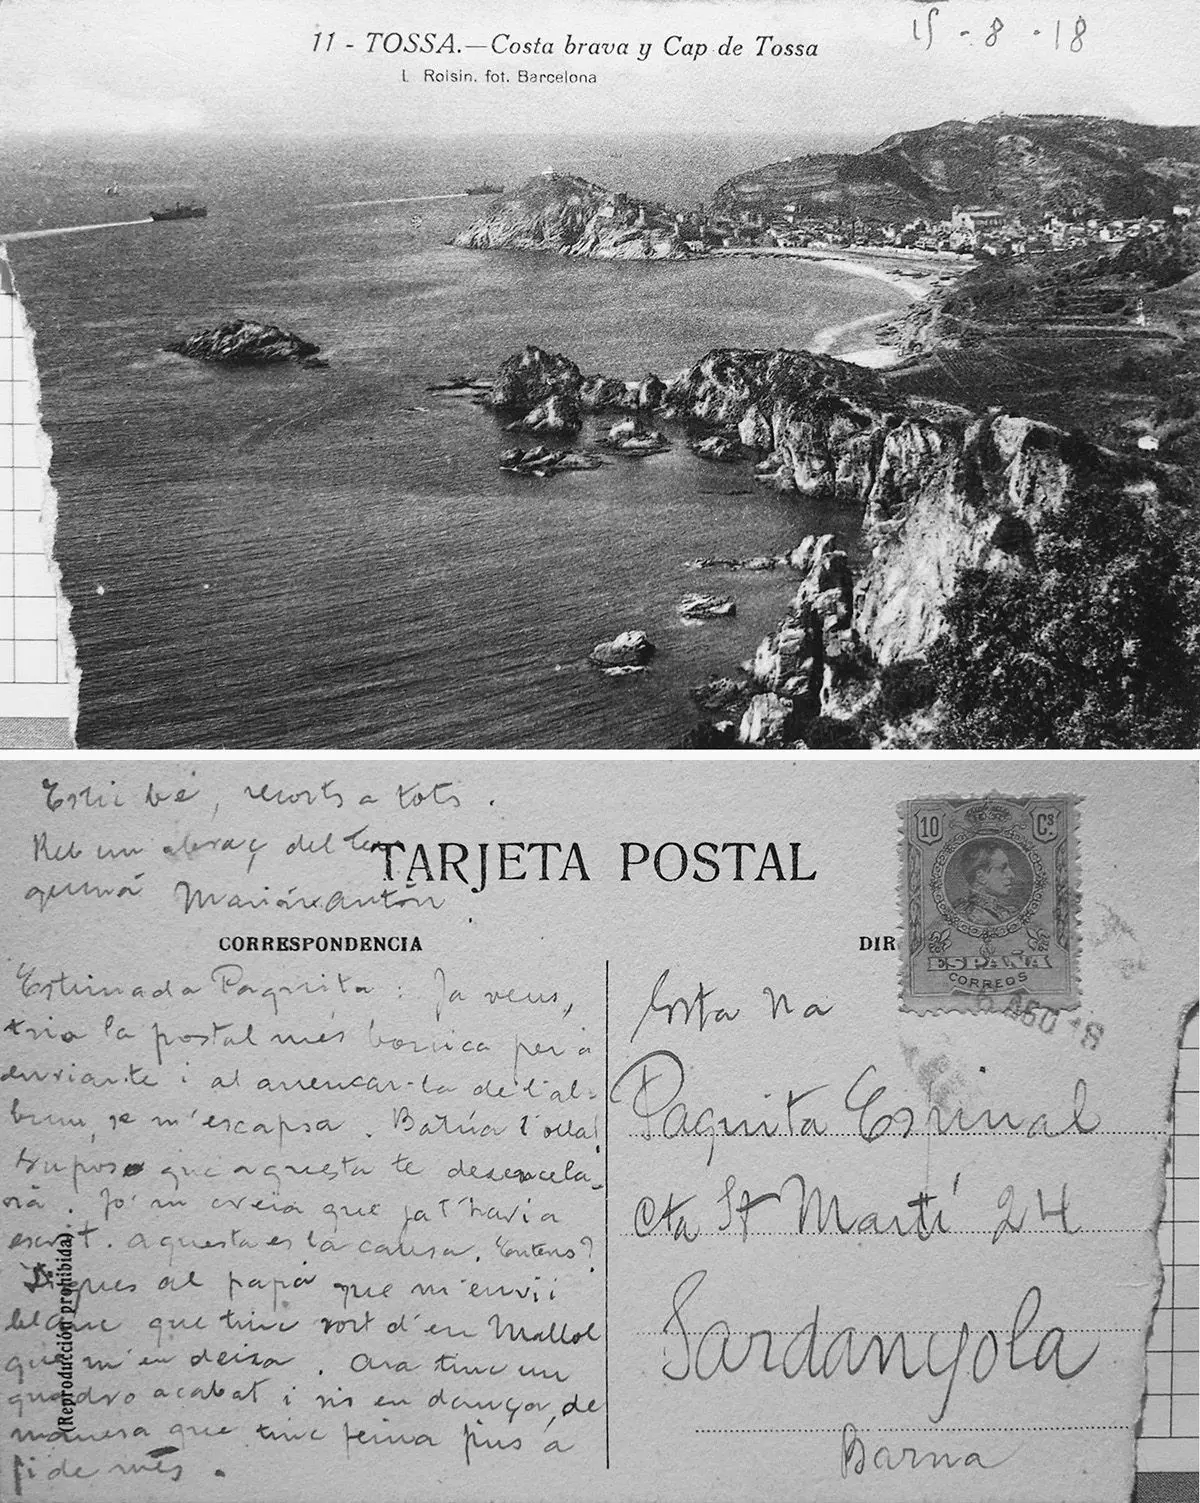 11 - TOSSA.—Costa brava y Cap de Tossa
15 - 8 - 18
L Roisin. fot. Barcelona
Estic bé, recorts a tots.
Reb un abraç del teu
germá Marián Antón
TARJETA POSTAL
CORRESPONDENCIA
DIR
10 Cs
ESPAÑA
CORREOS
AGO 18
Estimada Paquita: Ja veus,
tria la postal més bonica per a
enviar-te i al arrencar-la de l'al-
bum, se m'escapsa. Batúa l'olla!
Suposo que aquesta te desencela-
rá. Jo m creia que ja t'havia
escrit. aquesta es la causa. Entens?
Digues al papá que m'envii
blanc que tinc sort d'en Mallol
que m'en deixa. Ara tinc un
quadro acabat i sis en dança, de
manera que tinc feina fins a
fi de més.
(Reproducción prohibida)
Srta Na
Paquita Espinal
Cta St Martí 24
Sardanyola
Barna